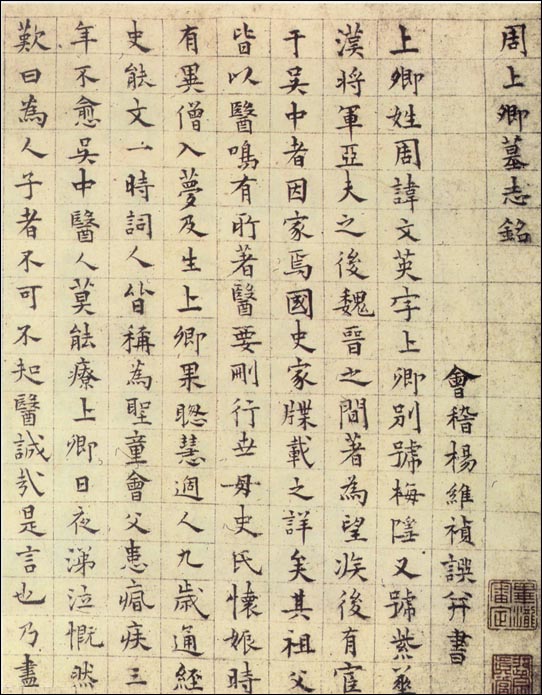 周上卿墓志銘
會稽楊維禎譔并書
上卿姓周諱文英字上卿別號梅隱又號紫華
漢將軍亞夫之後魏晉之間著為望族後有宦
于吳中者因家焉國史家牒載之詳矣其祖父
皆以醫鳴有所著醫要刪行世母史氏懷娠時
有異僧入夢及生上卿果聰慧過人九歲通經
史能文一時詞人皆稱為聖童會父患痟疾三
年不愈吳中醫人莫能療上卿日夜涕泣慨然
歎曰為人子者不可不知醫誠哉是言也乃盡